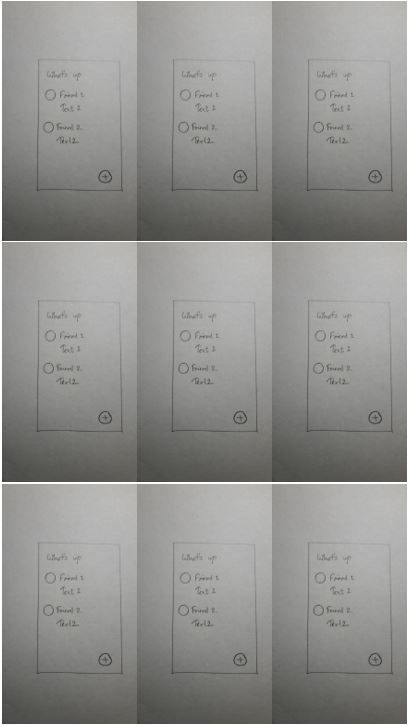 What's up
Friend 1
Text 1
Friend 2.
Text 2.
+
What's up
Friend 1
Text 1
Friend 2.
Text 2.
+
What's up
Friend 1
Text 1
Friend 2.
Text 2.
+
What's up
Friend 1
Text 1
Friend 2.
Text 2.
+
What's up
Friend 1
Text 1
Friend 2.
Text 2.
+
What's up
Friend 1
Text 1
Friend 2.
Text 2.
+
What's up
Friend 1
Text 1
Friend 2.
Text 2.
+
What's up
Friend 1
Text 1
Friend 2.
Text 2.
+
What's up
Friend 1
Text 1
Friend 2.
Text 2.
+